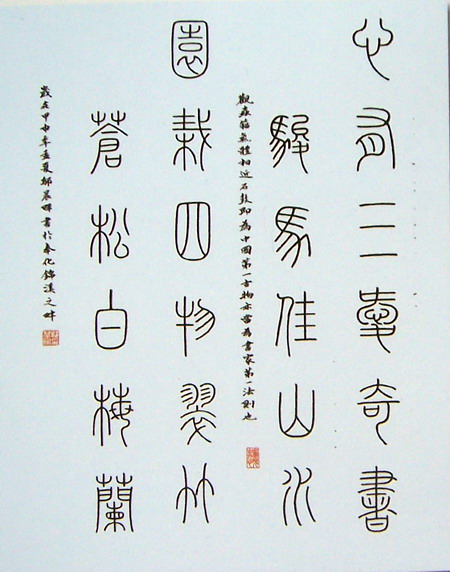 心有三愛奇書
駿馬佳山水
觀氣體相近石鼓即為中國第一古物亦當為書家第一法則也
園栽四物翠竹
蒼松白梅蘭
歲在甲申年孟夏晨暉書於奉化錦溪之畔